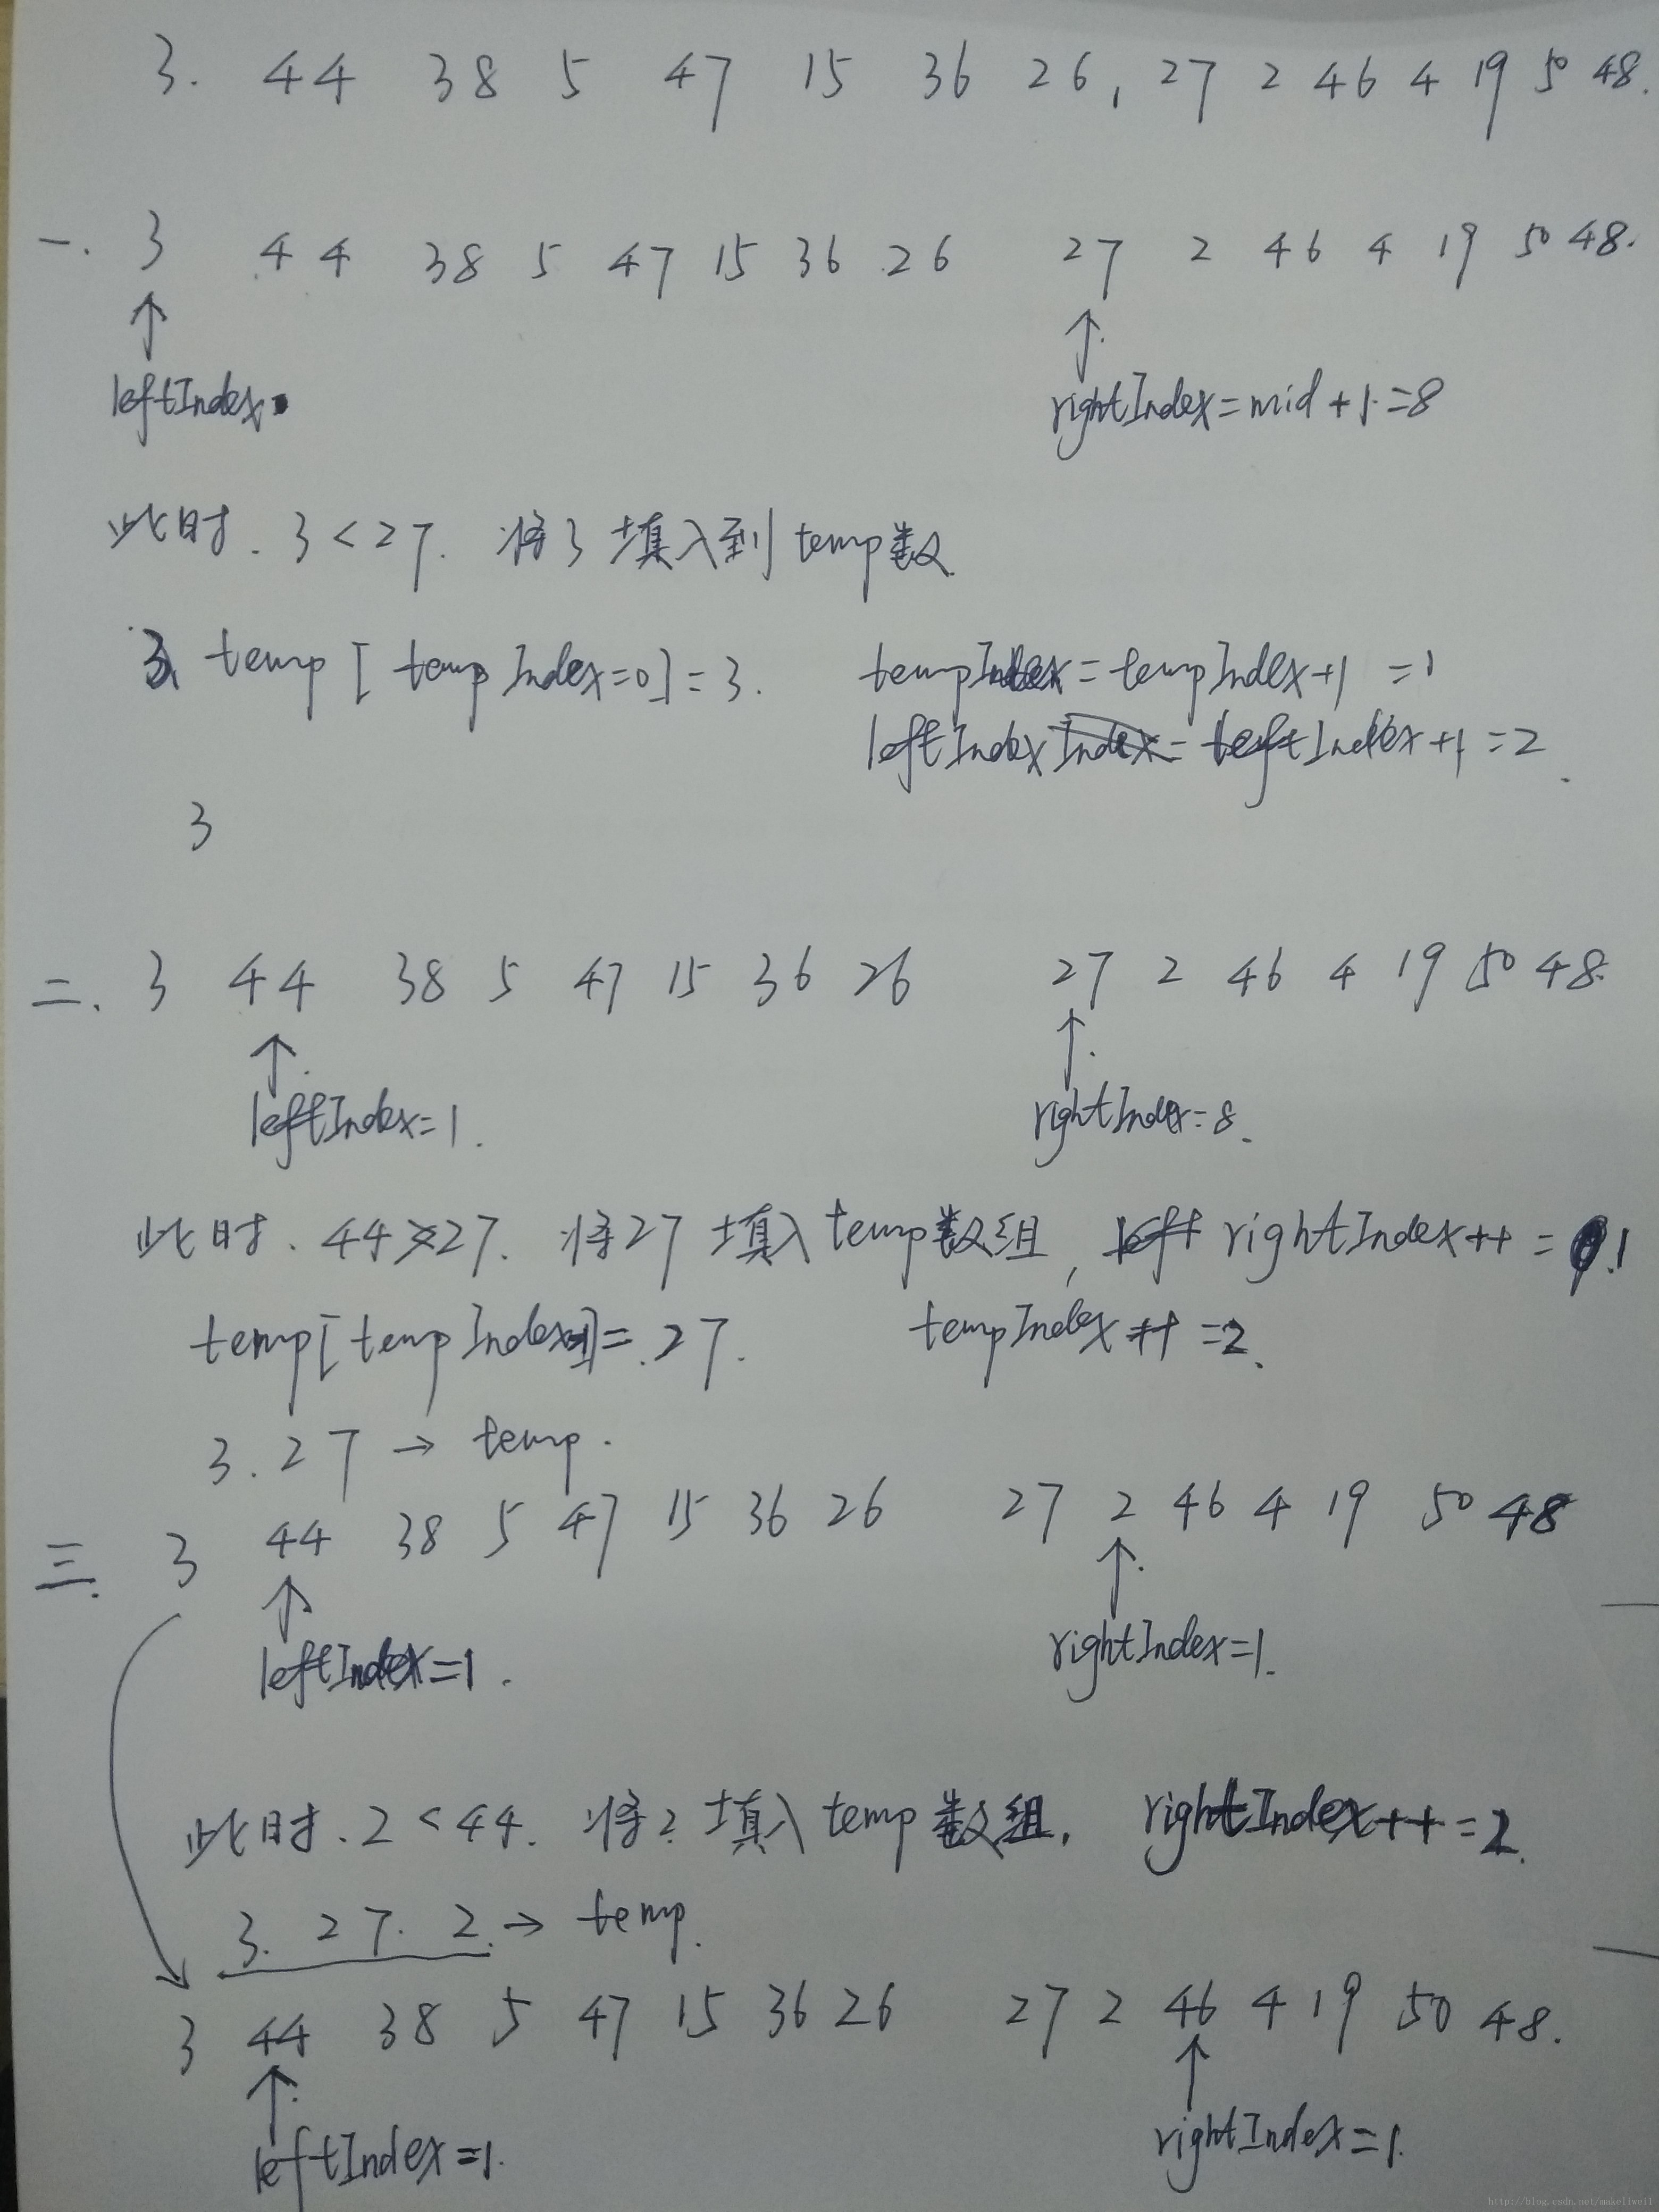 3. 44 38 5 47 15 36 26, 27 2 46 4 19 50 48.
一. 3 44 38 5 47 15 36 26 27 2 46 4 19 50 48.
leftIndex
rightIndex=mid+1=8
此时. 3<27. 将3填入到temp数
temp[tempIndex=0]=3. tempIndex=tempIndex+1 =1
leftIndex = leftIndex+1=2.
3
二. 3 44 38 5 47 15 36 26 27 2 46 4 19 50 48.
leftIndex=1.
rightIndex=8.
此时. 44>27. 将27填入temp数组, rightIndex++ = 1
temp[tempIndex=1]=27. tempIndex++ =2.
3. 27 → temp.
三. 3 44 38 5 47 15 36 26 27 2 46 4 19 50 48
leftIndex=1.
rightIndex=1.
此时. 2<44. 将2填入temp数组. rightIndex++=2.
3. 27. 2. → temp.
3 44 38 5 47 15 36 26 27 2 46 4 19 50 48.
leftIndex=1.
rightIndex=1.
http://blog.csdn.net/makeliwei1